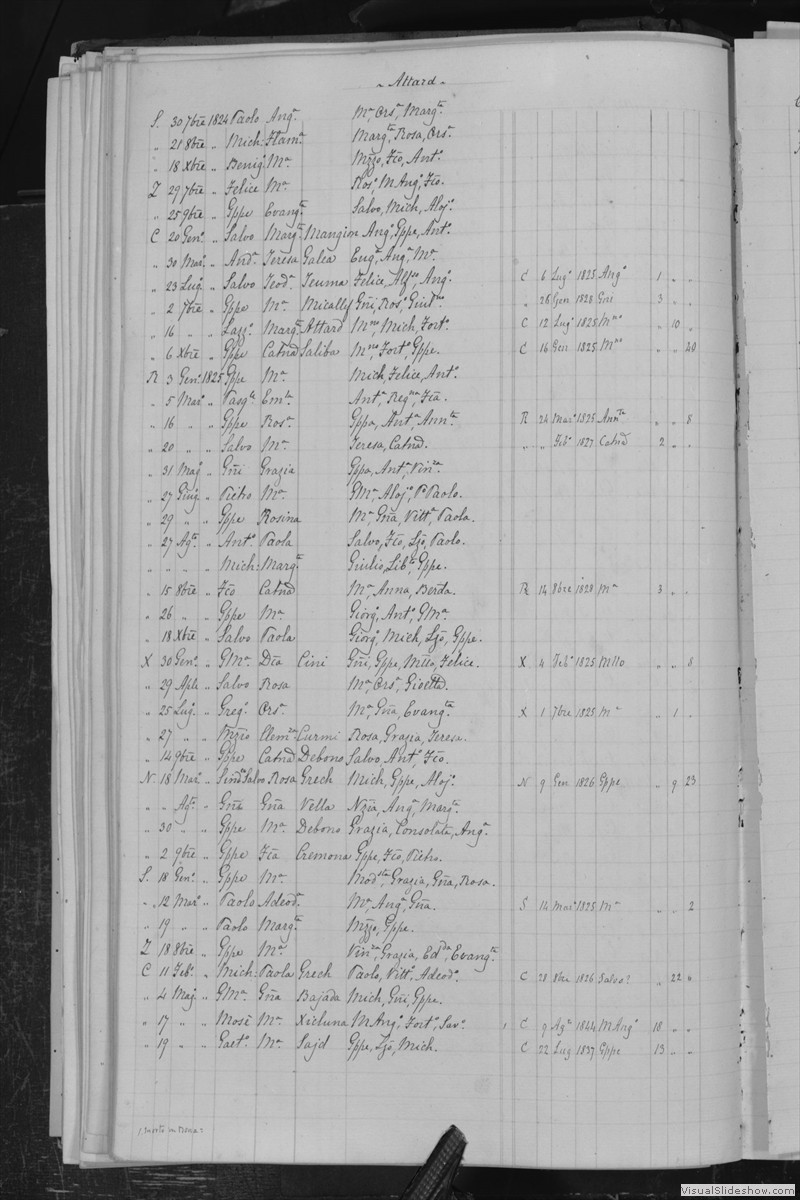 „ Attard „
S. 30 7bre 1824 Paolo Anga. Ma Orsa, Margta.
„ 21 8bre „ Mich: Flama. Margta, Rosa, Orsa.
„ 18 Xbre „ Benigo Ma. Mzzo, Fco, Anto.
Z 29 7bre „ Felice Ma. Roso, M Ango, Fco.
„ 25 9bre „ Gppe Evangta. Salvo, Mich, Alojo.
C 20 Geno. „ Salvo Margta Mangion Ango, Gppe, Anto.
„ 30 Maro. „ Anda. Teresa Galea Euga, Anga, Ma.
„ 23 Lugo. „ Salvo Teoda. Teuma Felice, Alfso, Ango. C 6 Lugo 1825 Ango 1 „ „
„ 2 7bre „ Gppe Ma. Mically Gni, Roso, „ 28 Gen 1828 Gni 3 „ „
„ 16 „ „ Lazzo. Margta Attard Mno, Mich, Forto. C 12 Lugo 1825 Mno „ 10 „
„ 6 Xbre „ Gppe Catnd Saliba Mno, Forto, Gppe. C 16 Gen 1825 Mno „ „ 20
R 3 Geno. 1825 Gppe Ma. Mich, Felice, Anto.
„ 5 Maro. „ Pasqle Emta. Anta, Regna, Fca.
„ 16 „ „ Gppe Rosa. Gppa, Anta, Annta. R 24 Maro 1825 Annta „ „ 8
„ 20 „ „ Salvo Ma. Teresa, Catnd. „ „ Febo 1827 Catnd 2 „ „
„ 31 Mago „ Gni Grazia Gppa, Anta, Vinza.
„ 27 Giugo „ Pietro Ma. GMa, Alojo, Po Paolo.
„ 29 „ „ Gppe Rosina Ma, Gna, Vitta, Paola.
„ 27 Agto. „ Anto. Paola Salvo, Fco, Ljo, Paolo.
„ „ „ „ Mich: Margta. Giulio, Libto, Gppe.
„ 15 8bre „ Fco Catnd Ma, Anna, Berda. R 14 8bre 1828 Ma 3 „ „
„ 26 „ „ Gppe Ma. Giorgo, Anto, GMa.
„ 18 Xbre „ Salvo Paola Giorgo, Mich, Ljo, Gppe.
X 30 Geno. „ GMa. Dca Cini Gni, Gppe, Mtto, Felice. X 4 Febo 1825 Mtto „ „ 8
„ 29 Aple „ Salvo Rosa Ma, Orsa,
„ 25 Lugo. „ Grego. Orsa. Ma, Gna, Evangta. X 1 7bre 1825 Ma „ 1 „
„ 27 „ „ Mzzo Clemza Curmi Rosa, Grazia, Teresa.
„ 14 9bre „ Gppe Catnd Debono Salvo, Anto, Fco.
N. 18 Maro. „ Sindo Salvo Rosa Grech Mich, Gppe, Alojo. N 9 Gen 1826 Gppe „ 9 23
„ „ Agto. „ Gna Vella Nzia, Anga, Marga.
„ 30 „ „ Gppe Ma. Debono Grazia, Consolata, Anga.
„ 2 9bre „ Gppe Fca Cremona Gppe, Fco, Pietro.
S. 18 Geno. „ Gppe Ma. Modsta, Grazia, Gna, Rosa.
„ 12 Maro. „ Paolo Adeoda. Ma, Anga, Gna. S 14 Maro 1825 Ma „ „ 2
„ 19 „ „ Paolo Margta. Mzzo, Gppe.
Z 18 8bre „ Gppe Ma. Vinza, Grazia, Edda, Evangta.
C 11 Febo. „ Mich: Paola Grech Paolo, Vitto, Adeodo. C 28 8bre 1826 Salvo? „ 22 „
„ 4 Mago „ GMa. Gna Bajada Mich, Gni, Gppe.
„ 17 „ „ Mosè Ma. Xicluna M Ango, Forto, Savo. C 9 Agto 1844 M Ango 18 „ „
„ 19 „ „ Gaeto. Ma. Sajd Gppe, Ljo, Mich. C 22 Lug 1837 Gppe 13 „ „
/ morto in Bona
VisualSlideshow.com